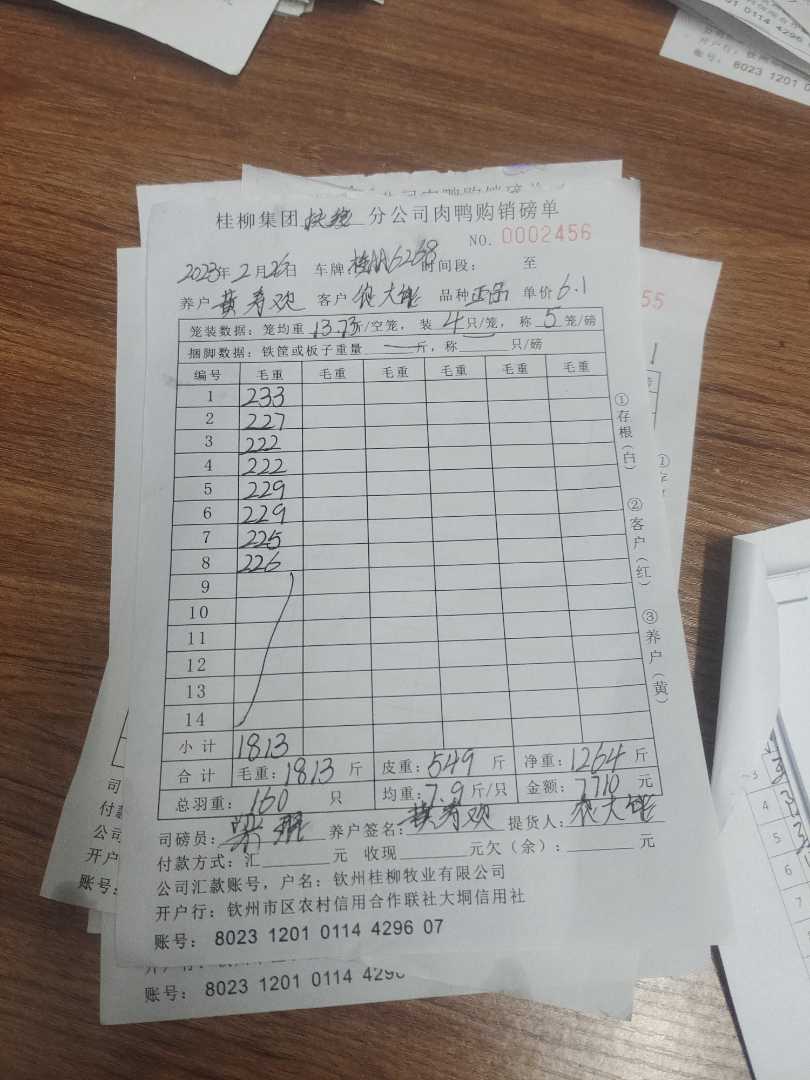 桂柳集团扶绥分公司肉鸭购销磅单
NO. 0002456
2023年2月26日 车牌:桂AA6268 时间段: 至
养户 黄寿欢 客户 农大 品种 正品 单价 6.1
笼装数据: 笼均重 13.73斤/空笼, 装 4 只/笼, 称 5 笼/磅
捆脚数据: 铁筐或板子重量 斤, 称 只/磅
编号 毛重 毛重 毛重 毛重 毛重 毛重
1 233
2 227
3 222
4 222
5 229
6 229
7 225
8 226
9
10
11
12
13
14
小计 1813
合计 毛重: 1813 斤 皮重: 549 斤 净重: 1264 斤
总羽重: 160 只 均重: 7.9 斤/只 金额: 7710 元
司磅员: 梁 养户签名: 黄寿欢 提货人: 农大
付款方式: 汇 元 收现 元欠(余): 元
公司汇款账号, 户名: 钦州桂柳牧业有限公司
开户行: 钦州市区农村信用合作联社大垌信用社
账号: 8023 1201 0114 4296 07
①存根(白)
②客户(红)
③养户(黄)
账号: 8023 1201 0114 429
01 0114 4296
开户行:
账号: 8023 1201 0
55
司
付款
公司
开户
账号:
~3
4
5
6
7
8